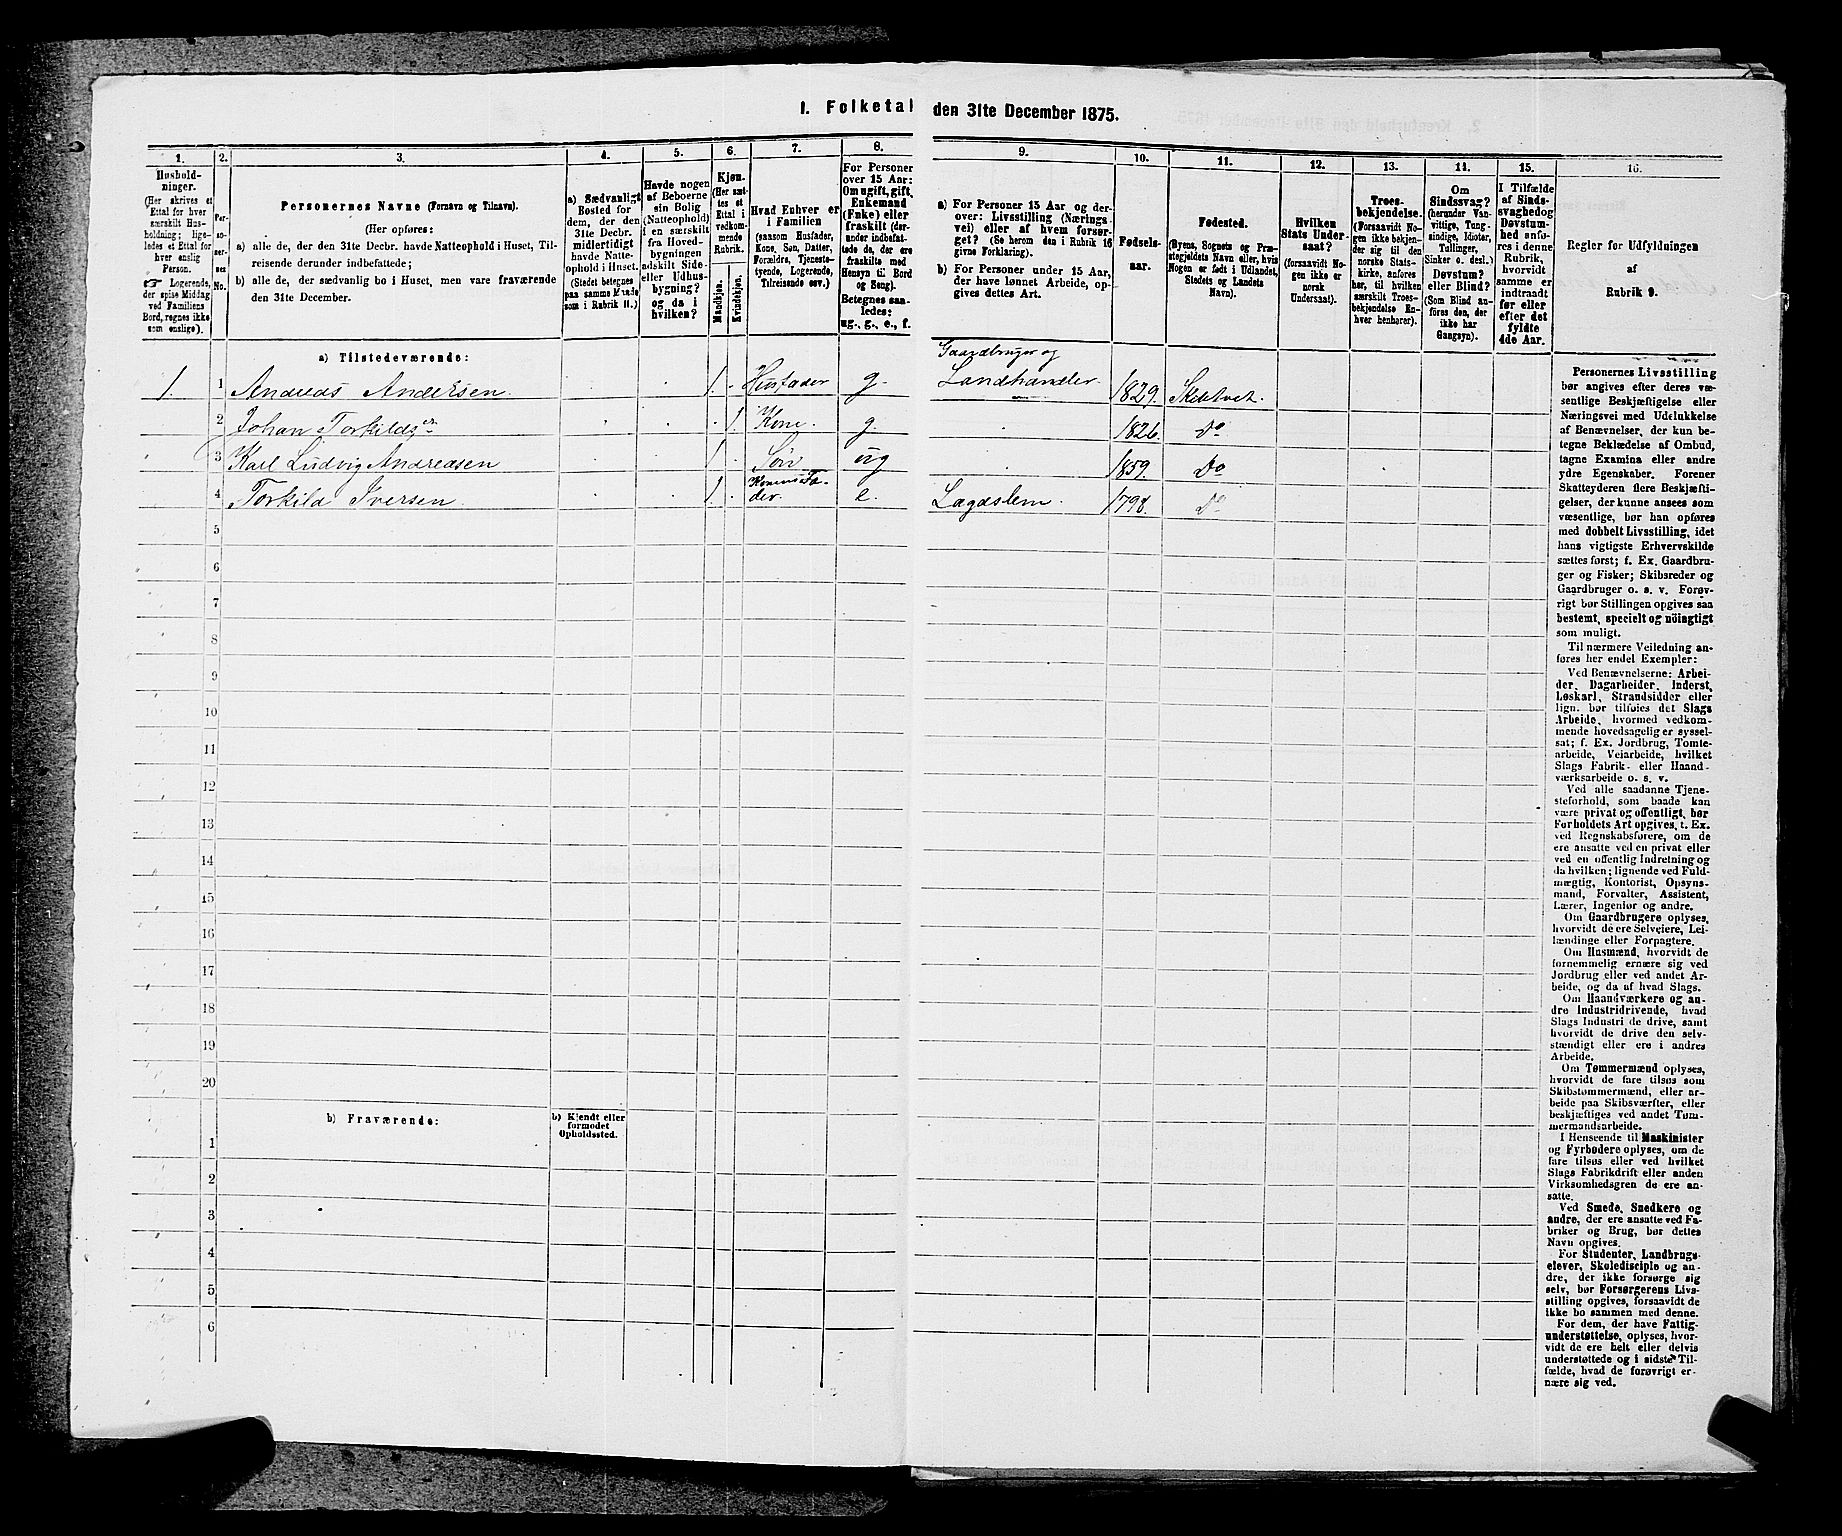 1. Folketal den 31te December 1875.
1. 2. 3. 4. 5. 6. 7. 8. 9. 10. 11. 12. 13. 14. 15. 16.
Hushold-
ninger.
(Her skrives et
Ettal for hver
særskilt Hus-
holdning; lige-
ledes et Ettal for
hver enslig
Person.
☛ Logerende,
der spise Middag
ved Familiens
Bord, regnes ikke
som enslige).
Per-
so-
ner-
nes
No.
Personernes Navne (Fornavn og Tilnavn).
(Her opføres:
a) alle de, der den 31te Decbr. havde Natteophold i Huset, Til-
reisende derunder indbefattede;
b) alle de, der sædvanlig bo i Huset, men vare fraværende
den 31te December.
a) Sædvanligt
Bosted for
dem, der den
31te Decbr.
midlertidigt
havde Natte-
ophold i Huset.
(Stedet betegnes
paa samme Maade
som i Rubrik 11.)
Havde nogen
af Beboerne
sin Bolig
(Natteophold)
i en særskilt
fra Hoved-
bygningen
adskilt Side-
eller Udhus-
bygning?
og da i
hvilken?
Kjøn.
(Her sæt-
tes et
Ettal i
vedkom-
mende
Rubrik.
Mandkjøn.
Kvindekjøn.
Hvad Enhver er
i Familien
(saasom Husfader,
Kone, Søn, Datter,
Forældre, Tjeneste-
tyende, Logerende,
Tilreisende osv.)
For Personer
over 15 Aar:
Om ugift, gift,
Enkemand
(Enke) eller
fraskilt (der-
under indbefat-
tede de, der ere
fraskilte med
Hensyn til Bord
og Seng).
Betegnes saa-
ledes:
ug., g., e., f.
a) For Personer 15 Aar og der-
over: Livsstilling (Nærings-
vei) eller af hvem forsør-
get? (Se herom den i Rubrik 16
givne Forklaring).
b) For Personer under 15 Aar,
der have lønnet Arbeide, op-
gives dettes Art.
Fødsels-
aar.
Fødested.
(Byens, Sognets og Præ-
stegjeldets Navn eller, hvis
Nogen er født i Udlandet,
Stedets og Landets
Navn).
Hvilken
Stats Under-
saat?
(forsaavidt No-
gen ikke er
norsk
Undersaat).
Troes-
bekjendelse.
(Forsaavidt No-
gen ikke bekjen-
der sig til den
norske Stats-
kirke, anføres
her, til hvilken
særskilt Troes-
bekjendelse En-
hver henhører).
Om
Sindssvag?
(herunder Van-
vittige, Tung-
sindige, Idioter,
Tullinger,
Sinker o. desl.)
Døvstum?
eller Blind?
(Som Blind an-
føres den, der
ikke har
Gangsyn).
I Tilfælde
af Sinds-
svaghed og
Døvstum-
hed anfø-
res i denne
Rubrik,
hvorvidt
samme er
indtraadt
før eller
efter det
fyldte
4de Aar.
Regler for Udfyldningen
af
Rubrik 9.
a) Tilstedeværende:
1. 1 Andreas Andersen 1. Husfader g. Gaardbruger og Landhandler. 1829. Skibtvet.
2 Johan Torkildsen 1. Kone. g. 1826. Do
3 Karl Ludvig Andreasen 1. Søn ug 1859. Do
4 Torkild Iversen 1. Konens Fa-
der. e. Lægdslem. 1798. Do
5
6
7
8
9
10
11
12
13
14
15
16
17
18
19
20
b) Fraværende:
b) Kjendt eller
formodet
Opholdssted.
1
2
3
4
5
6
Personernes Livsstilling
bør angives efter deres væ-
sentlige Beskjæftigelse eller
Næringsvei med Udelukkelse
af Benævnelser, der kun be-
tegne Beklædelse af Ombud,
tagne Examina eller andre
ydre Egenskaber. Forener
Skatteyderen flere Beskjæfti-
gelser, der kunne ansees som
væsentlige, bør han opføres
med dobbelt Livsstilling, idet
hans vigtigste Erhvervskilde
sættes først; f. Ex. Gaardbru-
ger og Fisker; Skibsreder og
Gaardbruger o. s. v. Forøv-
rigt bør Stillingen opgives saa
bestemt, specielt og nøiagtigt
som muligt.
Til nærmere Veiledning an-
føres her endel Exempler:
Ved Benævnelserne: Arbei-
der, Dagarbeider, Inderst,
Løskarl, Strandsidder eller
lign. bør tilføies det Slags
Arbeide, hvormed vedkom-
mende hovedsagelig er syssel-
sat; f. Ex. Jordbrug, Tomte-
arbeide, Veiarbeide, hvilket
Slags Fabrik- eller Haand-
værksarbeide o. s. v.
Ved alle saadanne Tjene-
steforhold, som baade kan
være privat og offentligt, bør
Forholdets Art opgives, t. Ex.
ved Regnskabsførere, om de
ere ansatte ved en privat eller
ved en offentlig Indretning og
da hvilken; lignende ved Fuld-
mægtig, Kontorist, Opsyns-
mand, Forvalter, Assistent,
Lærer, Ingeniør og andre.
Om Gaardbrugere oplyses,
hvorvidt de ere Selveiere, Lei-
lændinge eller Forpagtere.
Om Husmænd, hvorvidt de
fornemmelig ernære sig ved
Jordbrug eller ved andet Ar-
beide, og da af hvad Slags.
Om Haandværkere og an-
dre Industridrivende, hvad
Slags Industri de drive, samt
hvorvidt de drive den selv-
stændigt eller ere i andres
Arbeide.
Om Tømmermænd oplyses,
hvorvidt de fare tilsøs som
Skibstømmermænd, eller ar-
beide paa Skibsværfter, eller
beskjæftiges ved andet Tøm-
mermandsarbeide.
I Henseende til Maskinister
og Fyrbødere oplyses, om de
fare tilsøs eller ved hvilket
Slags Fabrikdrift eller anden
Virksomhedsgren de ere an-
satte.
Ved Smede, Snedkere og
andre, der ere ansatte ved Fa-
briker og Brug, bør dettes
Navn opgives.
For Studenter, Landbrugs-
elever, Skoledisciple og an-
dre, der ikke forsørge sig
selv, bør Forsørgerens Livs-
stilling opgives, forsaavidt de
ikke bo sammen med denne.
For dem, der have Fattig-
understøttelse, oplyses, hvor-
vidt de ere helt eller delvis
understøttede og i sidste Til-
fælde, hvad de forøvrigt er-
nære sig ved.